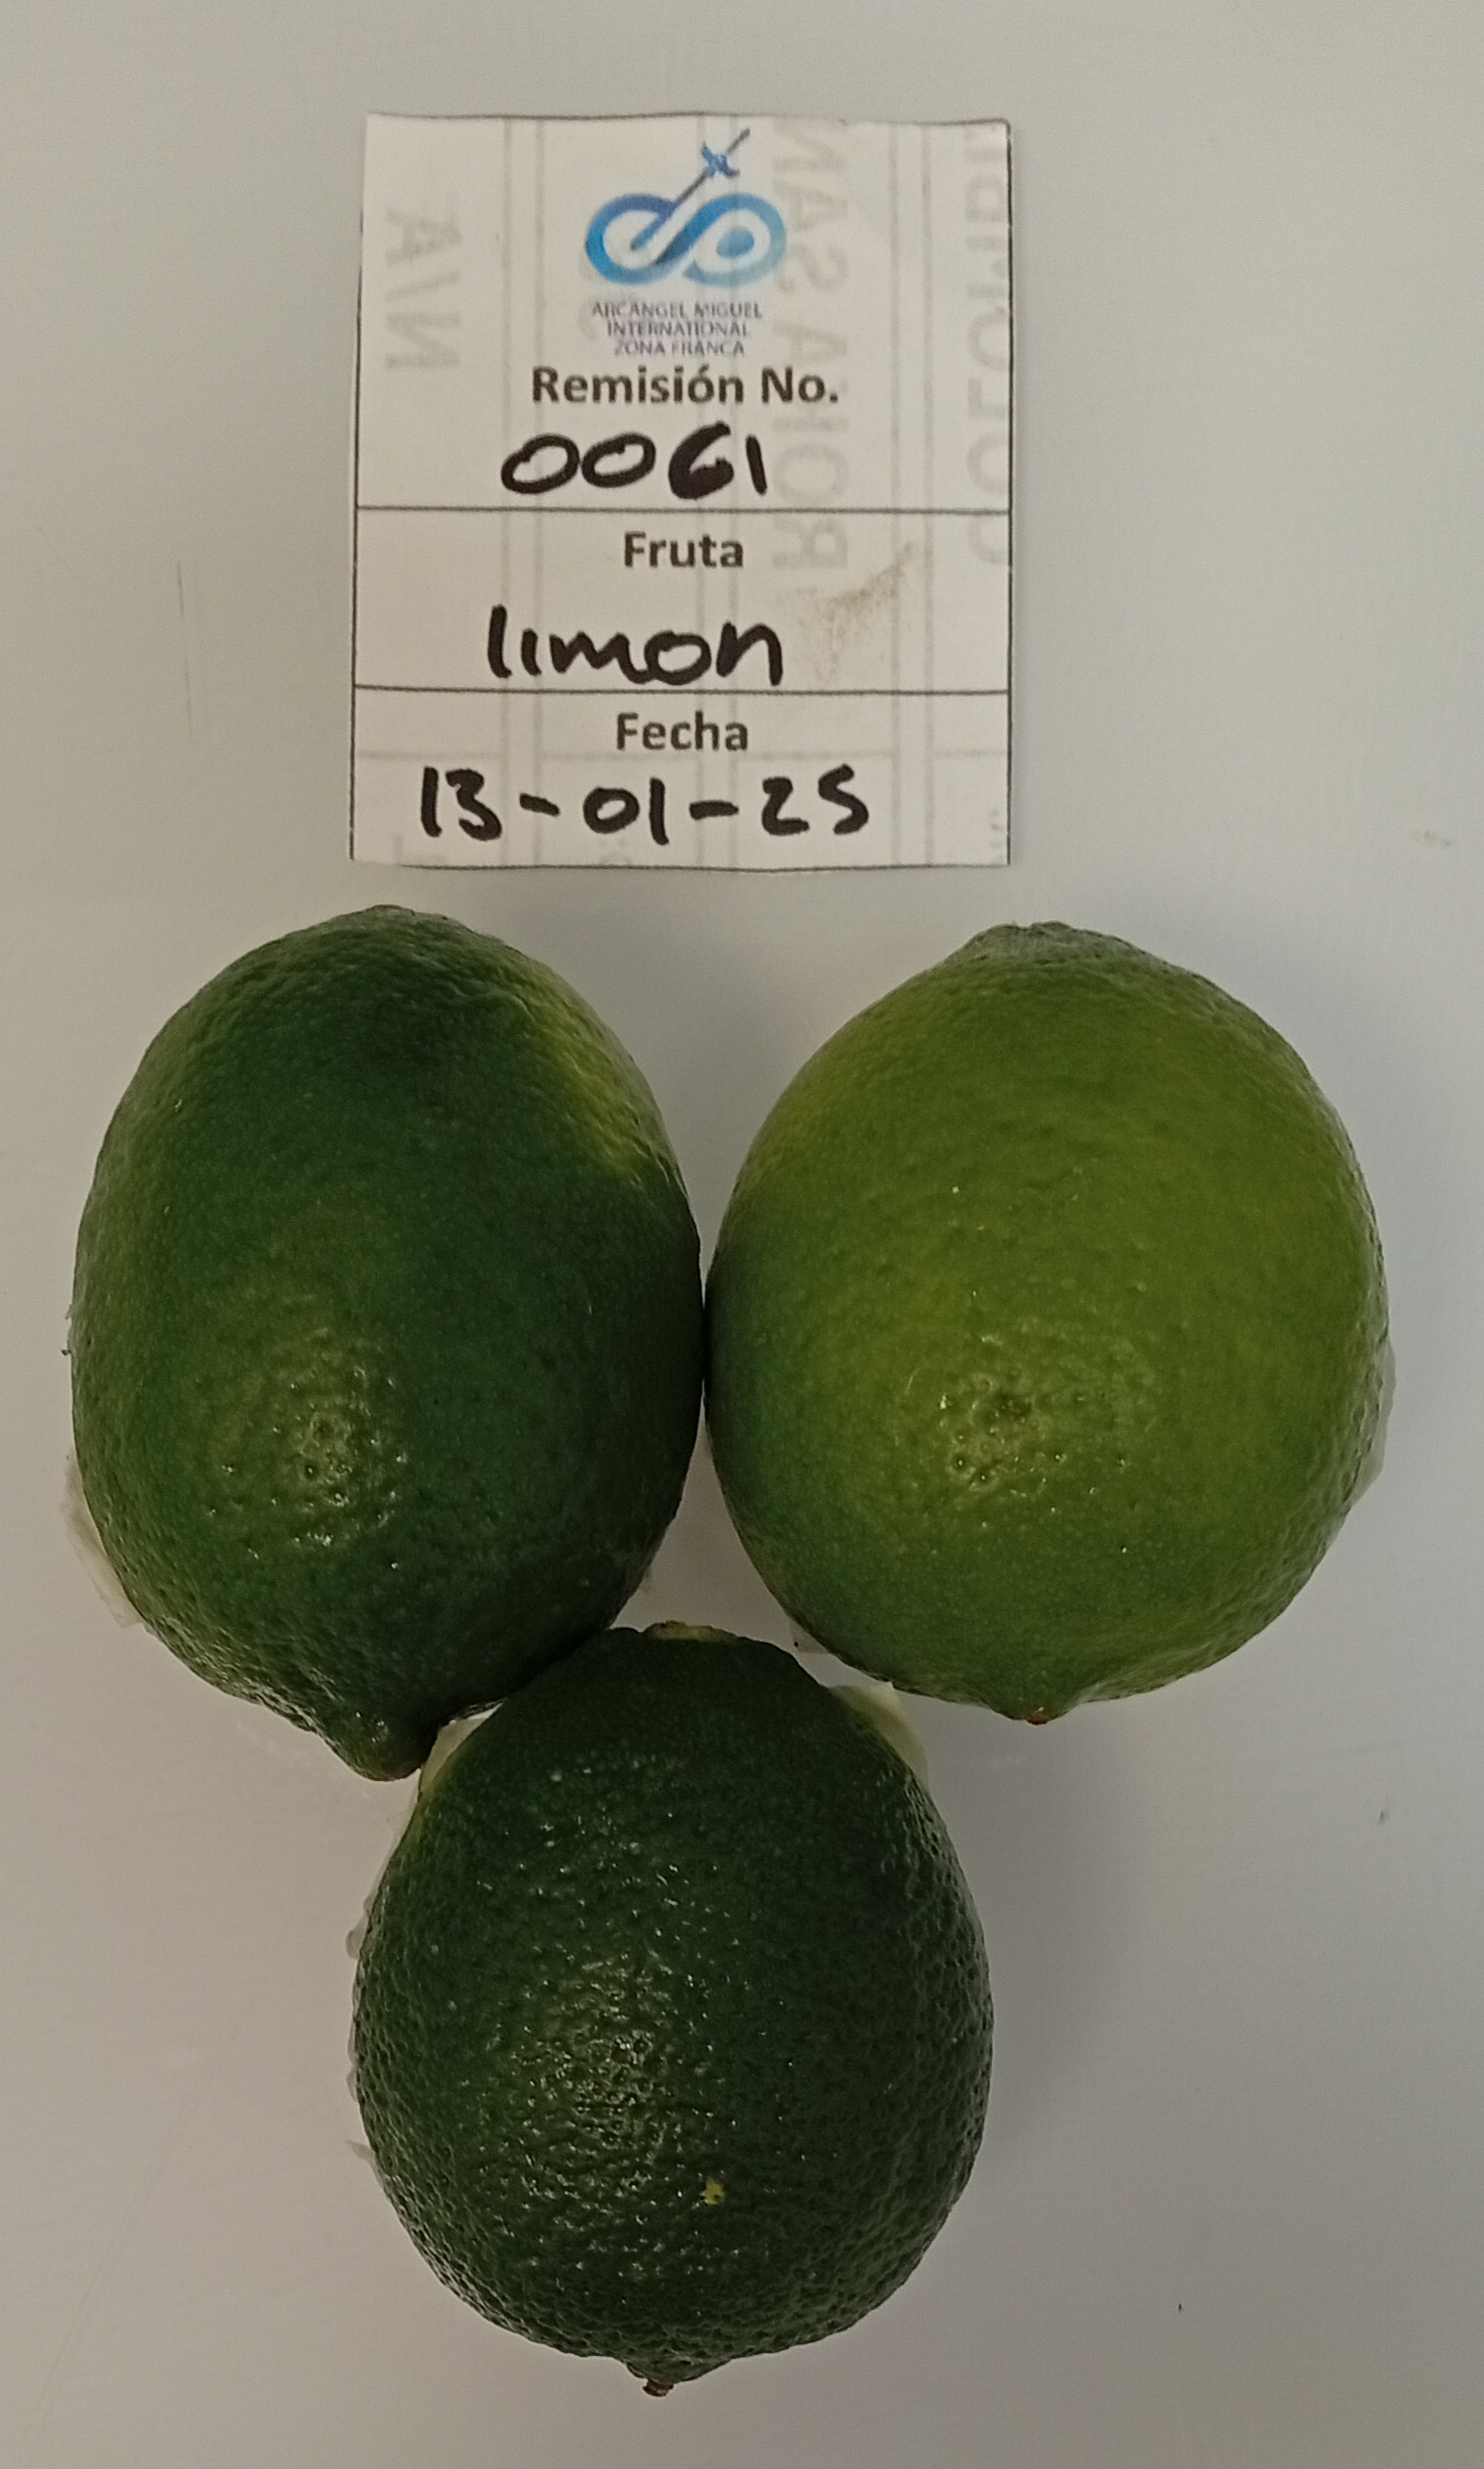 ARCANGEL MIGUEL
INTERNATIONAL
ZONA FRANCA
Remisión No.
0061
Fruta
limon
Fecha
13-01-25